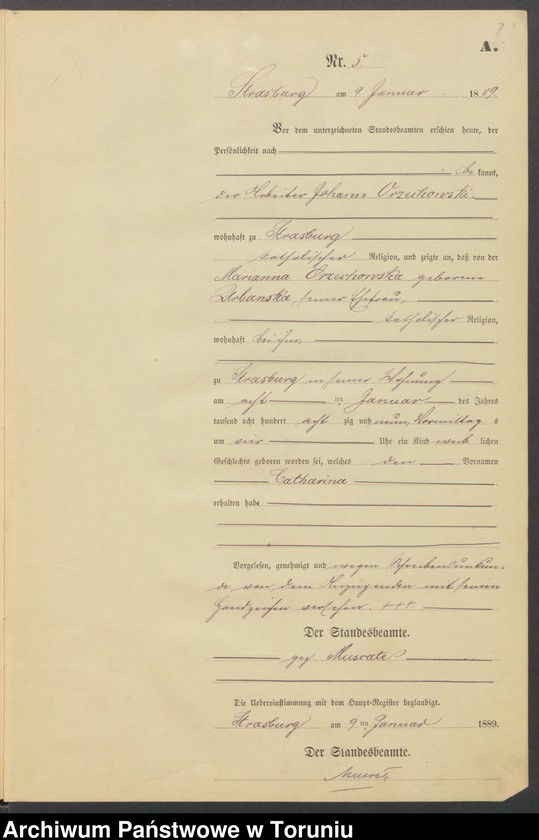 7
A.
Nr. 5
Strasburg am 9. Januar 1889.
Vor dem unterzeichneten Standesbeamten erschien heute, der
Persönlichkeit nach
be kannt,
der Arbeiter Johann Orzechowski
wohnhaft zu Strasburg
katholischer Religion, und zeigte an, daß von der
Marianna Orzechowska geborene
Urbanska, seiner Ehefrau,
katholischer Religion,
wohnhaft bei ihm,
zu Strasburg in seiner Wohnung
am acht ten Januar des Jahres
tausend acht hundert acht zig und neun, Vormittag s
um vier Uhr ein Kind weib lichen
Geschlechts geboren worden sei, welches den Vornamen
Catharina
erhalten habe.
Vorgelesen, genehmigt und wegen Schreibensunkun-
de von dem Anzeigenden mit seinem
Handzeichen versehen. +++
Der Standesbeamte.
gez
Die Uebereinstimmung mit dem Haupt-Register beglaubigt.
Strasburg am 9ten Januar 1889.
Der Standesbeamte.
Archiwum Państwowe w Toruniu